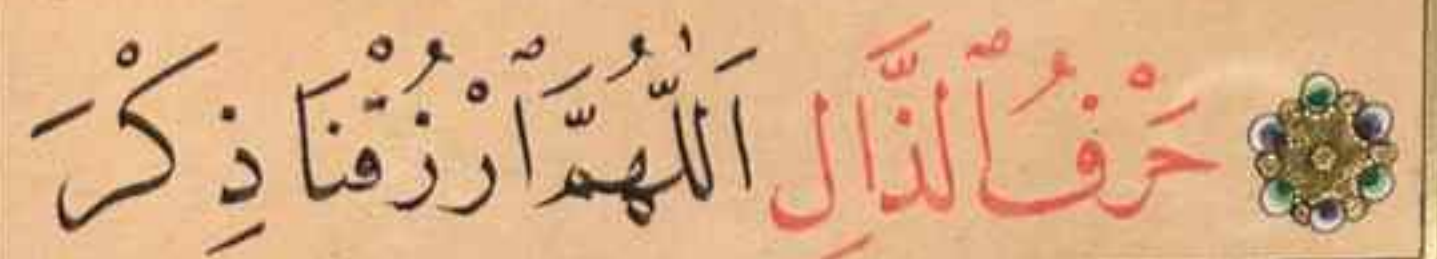 حَرْفُ ٱلذَّالِ اَللّٰهُمَّ ٱرْزُقْنَا ذِكْرَ